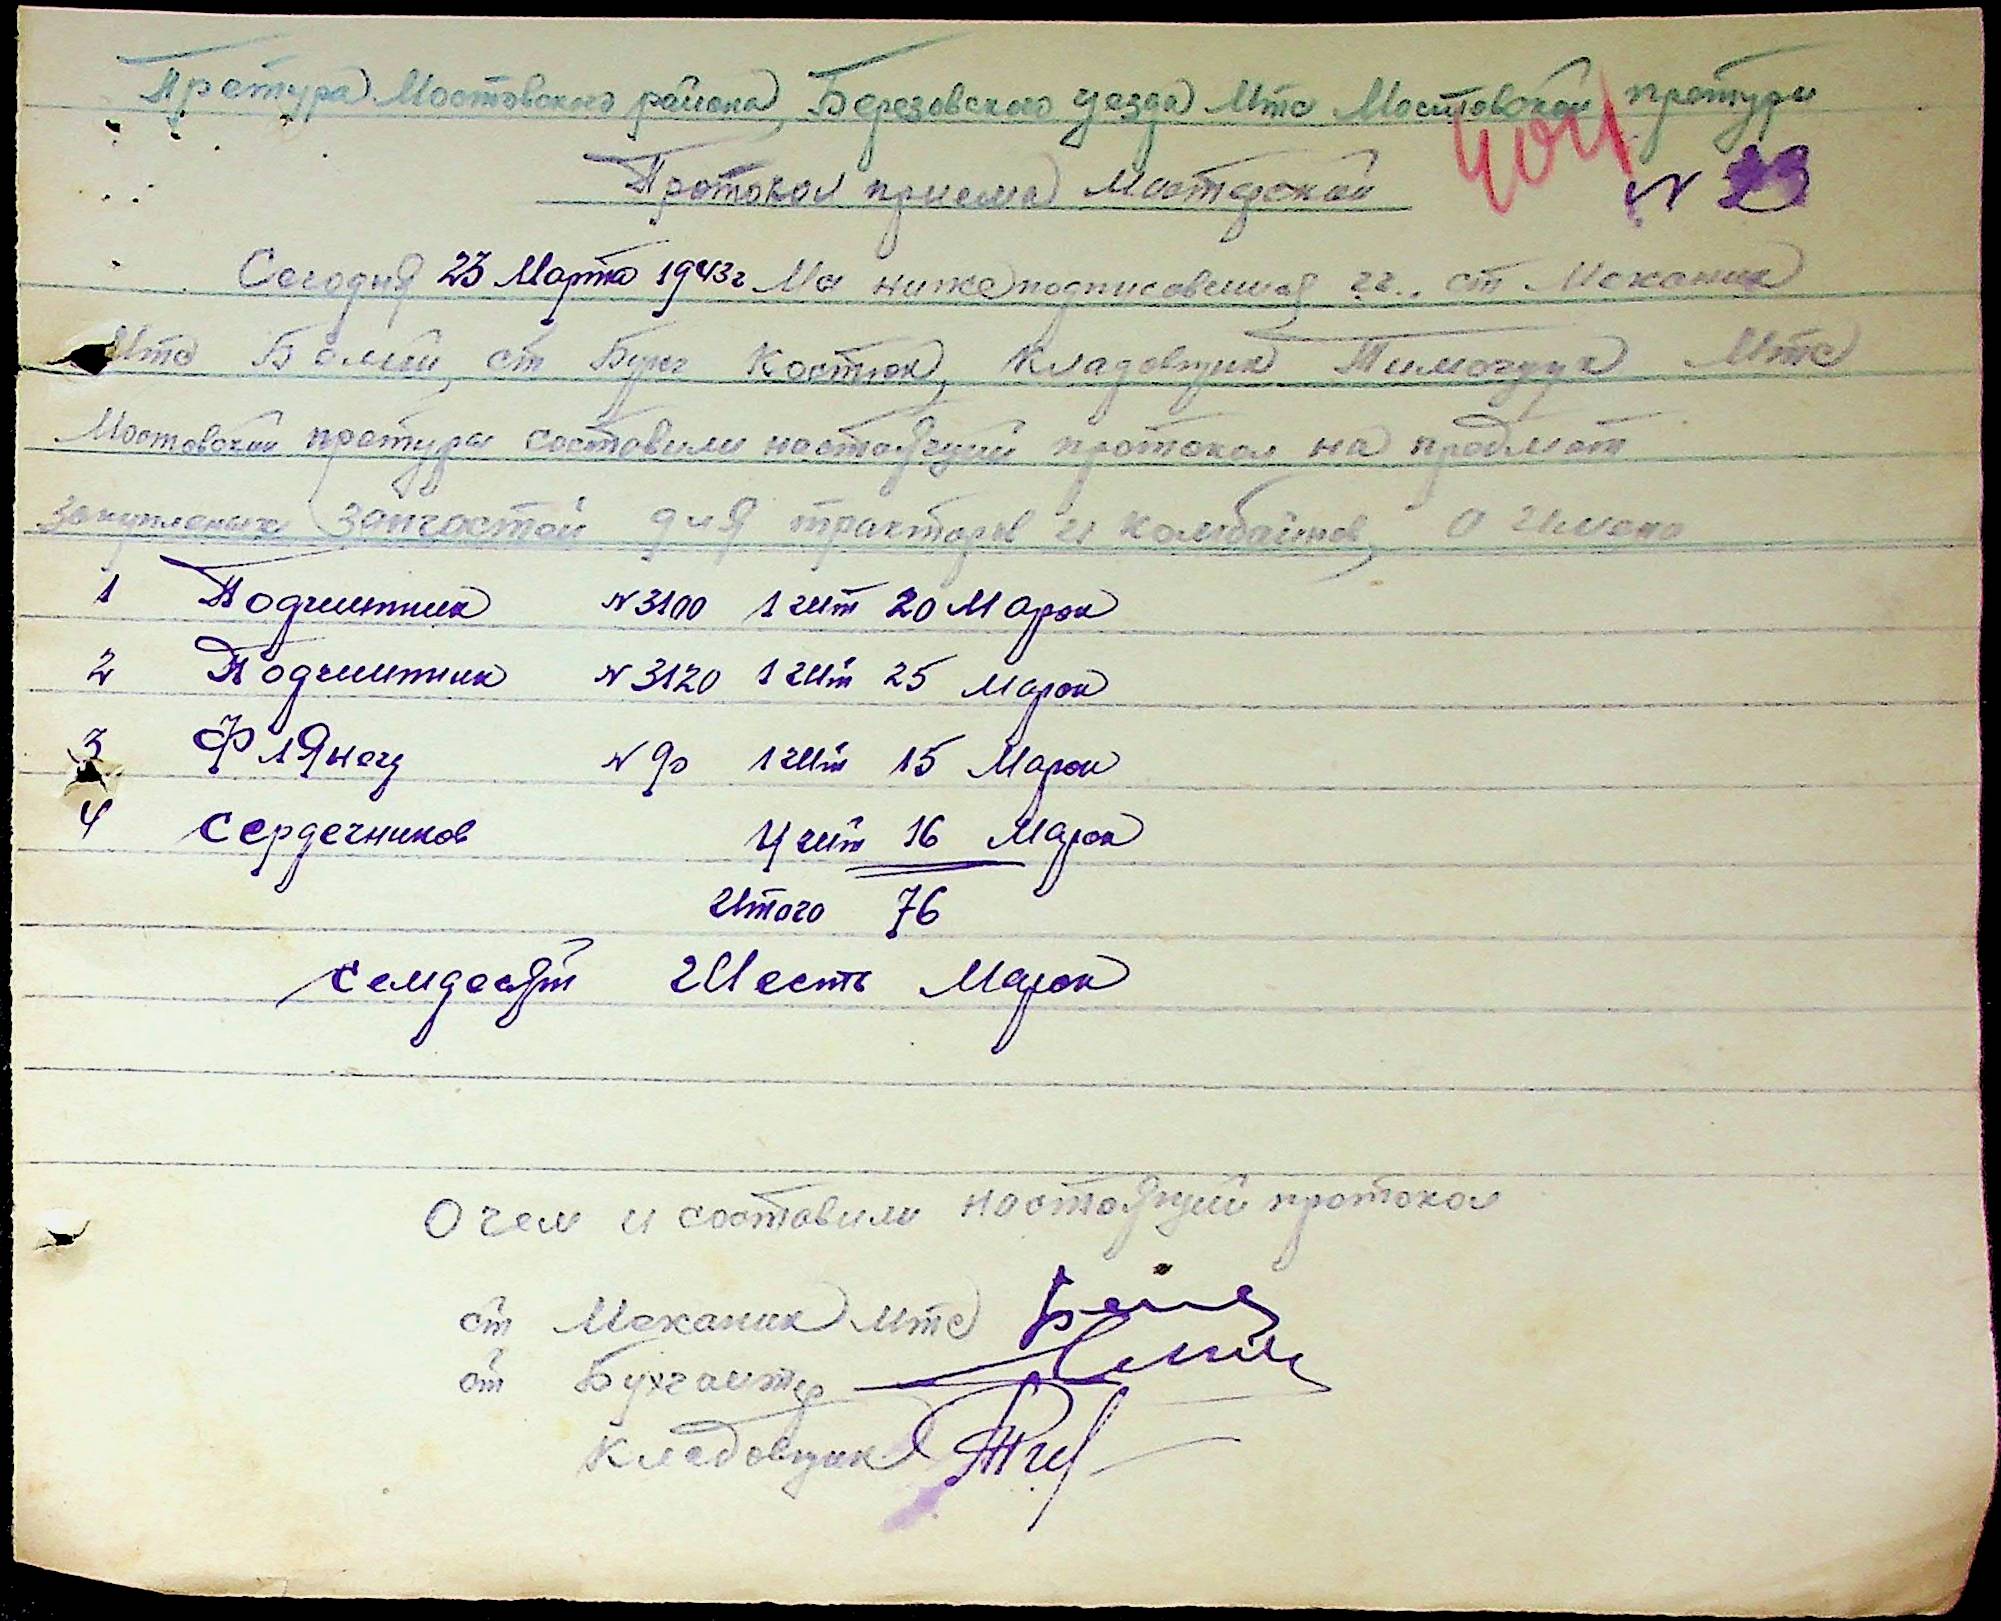 Претура Мостовского района, Березовского уезда Мтс Мостовской претуры
404
Протокол приема Мастерской N 33
Сегодня 23 Марта 1943г Мы нижеподписавшиеся гг., ст Механик
Мтс ст Бухг Костюк, Кладовщик Тимощук Мтс
Мостовский претуры составили настоящий протокол на предмет
закупленых запчастей для тракторов и комбайнов, а имено
1 Подчипник N 3100 1 шт 20 Марок
2 Подчипник N 3120 1 шт 25 Марок
3 Флянец N 90 1 шт 15 Марок
4 Сердечников 4 шт 16 Марок
Итого 76
Семдесят Шесть Марок
О чем и составили настоящий протокол
ст Механик Мтс
ст Бухгалтер
Кладовщик